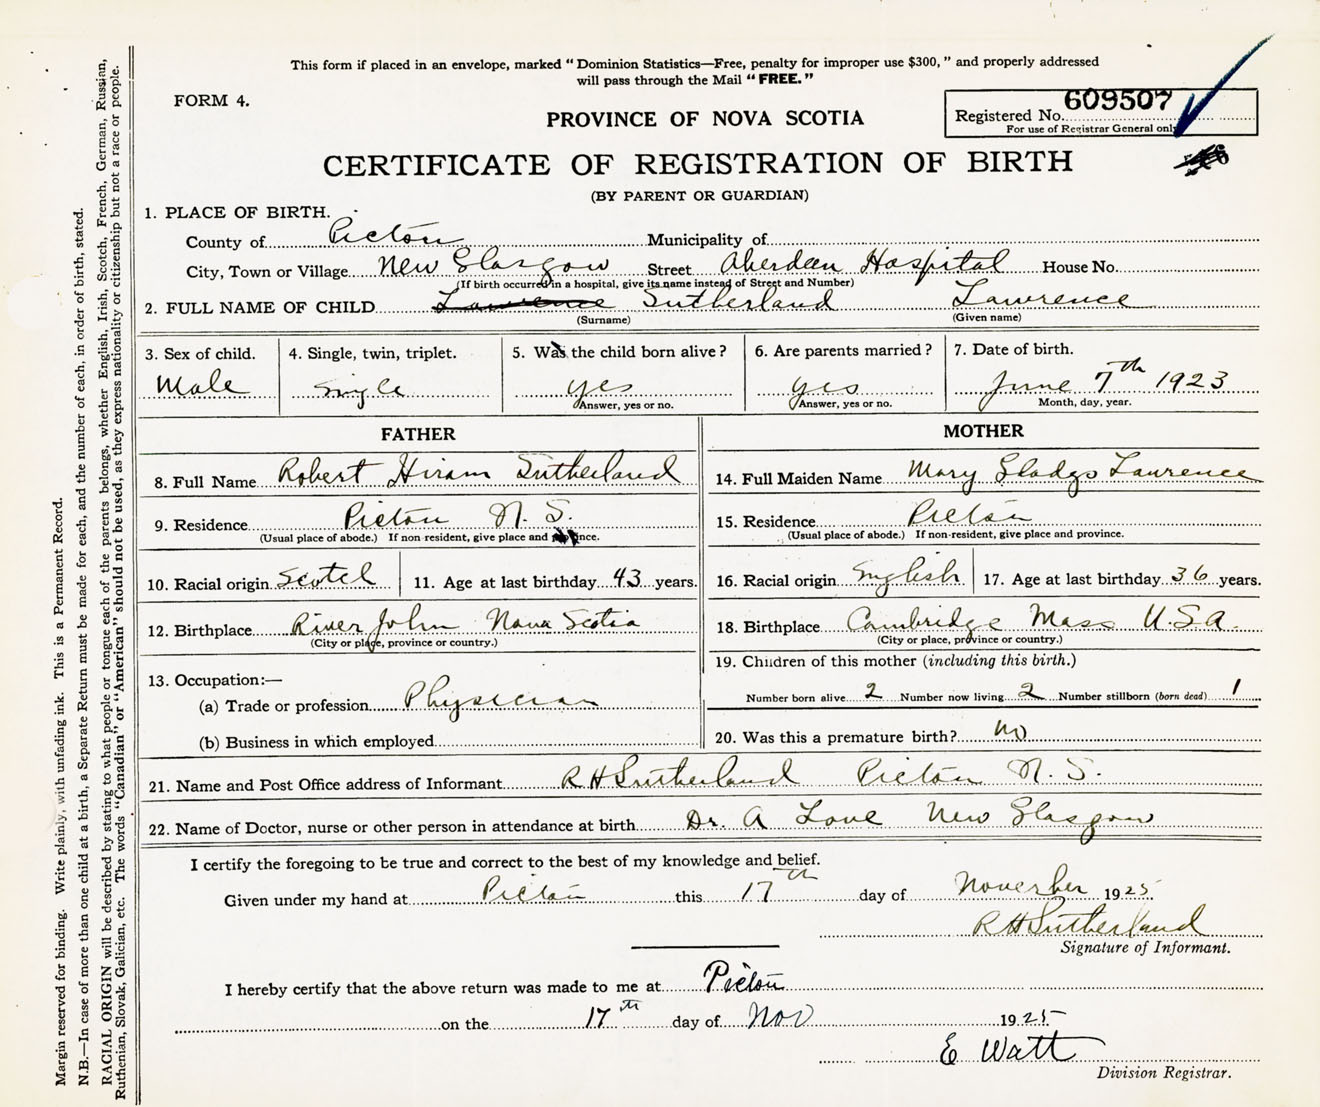 This form if placed in an envelope, marked "Dominion Statistics—Free, penalty for improper use $300," and properly addressed
will pass through the Mail "FREE."
FORM 4.
PROVINCE OF NOVA SCOTIA
Registered No. 609507
For use of Registrar General only
CERTIFICATE OF REGISTRATION OF BIRTH
(BY PARENT OR GUARDIAN)
1. PLACE OF BIRTH.
County of Pictou Municipality of
City, Town or Village New Glasgow Street Aberdeen Hospital House No.
(If birth occurred in a hospital, give its name instead of Street and Number)
2. FULL NAME OF CHILD Lawrence Sutherland Lawrence
(Surname) (Given name)
3. Sex of child. 4. Single, twin, triplet. 5. Was the child born alive? 6. Are parents married? 7. Date of birth.
Male Single yes yes June 7th 1923
Answer, yes or no. Answer, yes or no. Month, day, year.
FATHER MOTHER
8. Full Name Robert Hiram Sutherland 14. Full Maiden Name Mary Gladys Lawrence
9. Residence Pictou N. S. 15. Residence Pictou
(Usual place of abode.) If non-resident, give place and province. (Usual place of abode.) If non-resident, give place and province.
10. Racial origin Scotch 11. Age at last birthday 43 years. 16. Racial origin English 17. Age at last birthday 36 years.
12. Birthplace River John Nova Scotia 18. Birthplace Cambridge Mass U.S.A.
(City or place, province or country.) (City or place, province or country.)
13. Occupation:— 19. Children of this mother (including this birth.)
(a) Trade or profession Physician Number born alive 2 Number now living 2 Number stillborn (born dead) 1
(b) Business in which employed 20. Was this a premature birth? no
21. Name and Post Office address of Informant R H Sutherland Pictou N. S.
22. Name of Doctor, nurse or other person in attendance at birth Dr. A Love New Glasgow
I certify the foregoing to be true and correct to the best of my knowledge and belief.
Given under my hand at Pictou this 17th day of November 1925
R H Sutherland
Signature of Informant.
I hereby certify that the above return was made to me at Pictou
on the 17th day of Nov 1925
E Watt
Division Registrar.
Margin reserved for binding. Write plainly, with unfading ink. This is a Permanent Record.
N.B.—In case of more than one child at a birth, a Separate Return must be made for each, and the number of each, in order of birth, stated.
RACIAL ORIGIN will be described by stating to what people or tongue each of the parents belongs, whether English, Irish, Scotch, French, German, Russian,
Ruthenian, Slovak, Galician, etc. The words "Canadian" or "American" should not be used, as they express nationality or citizenship but not a race or people.